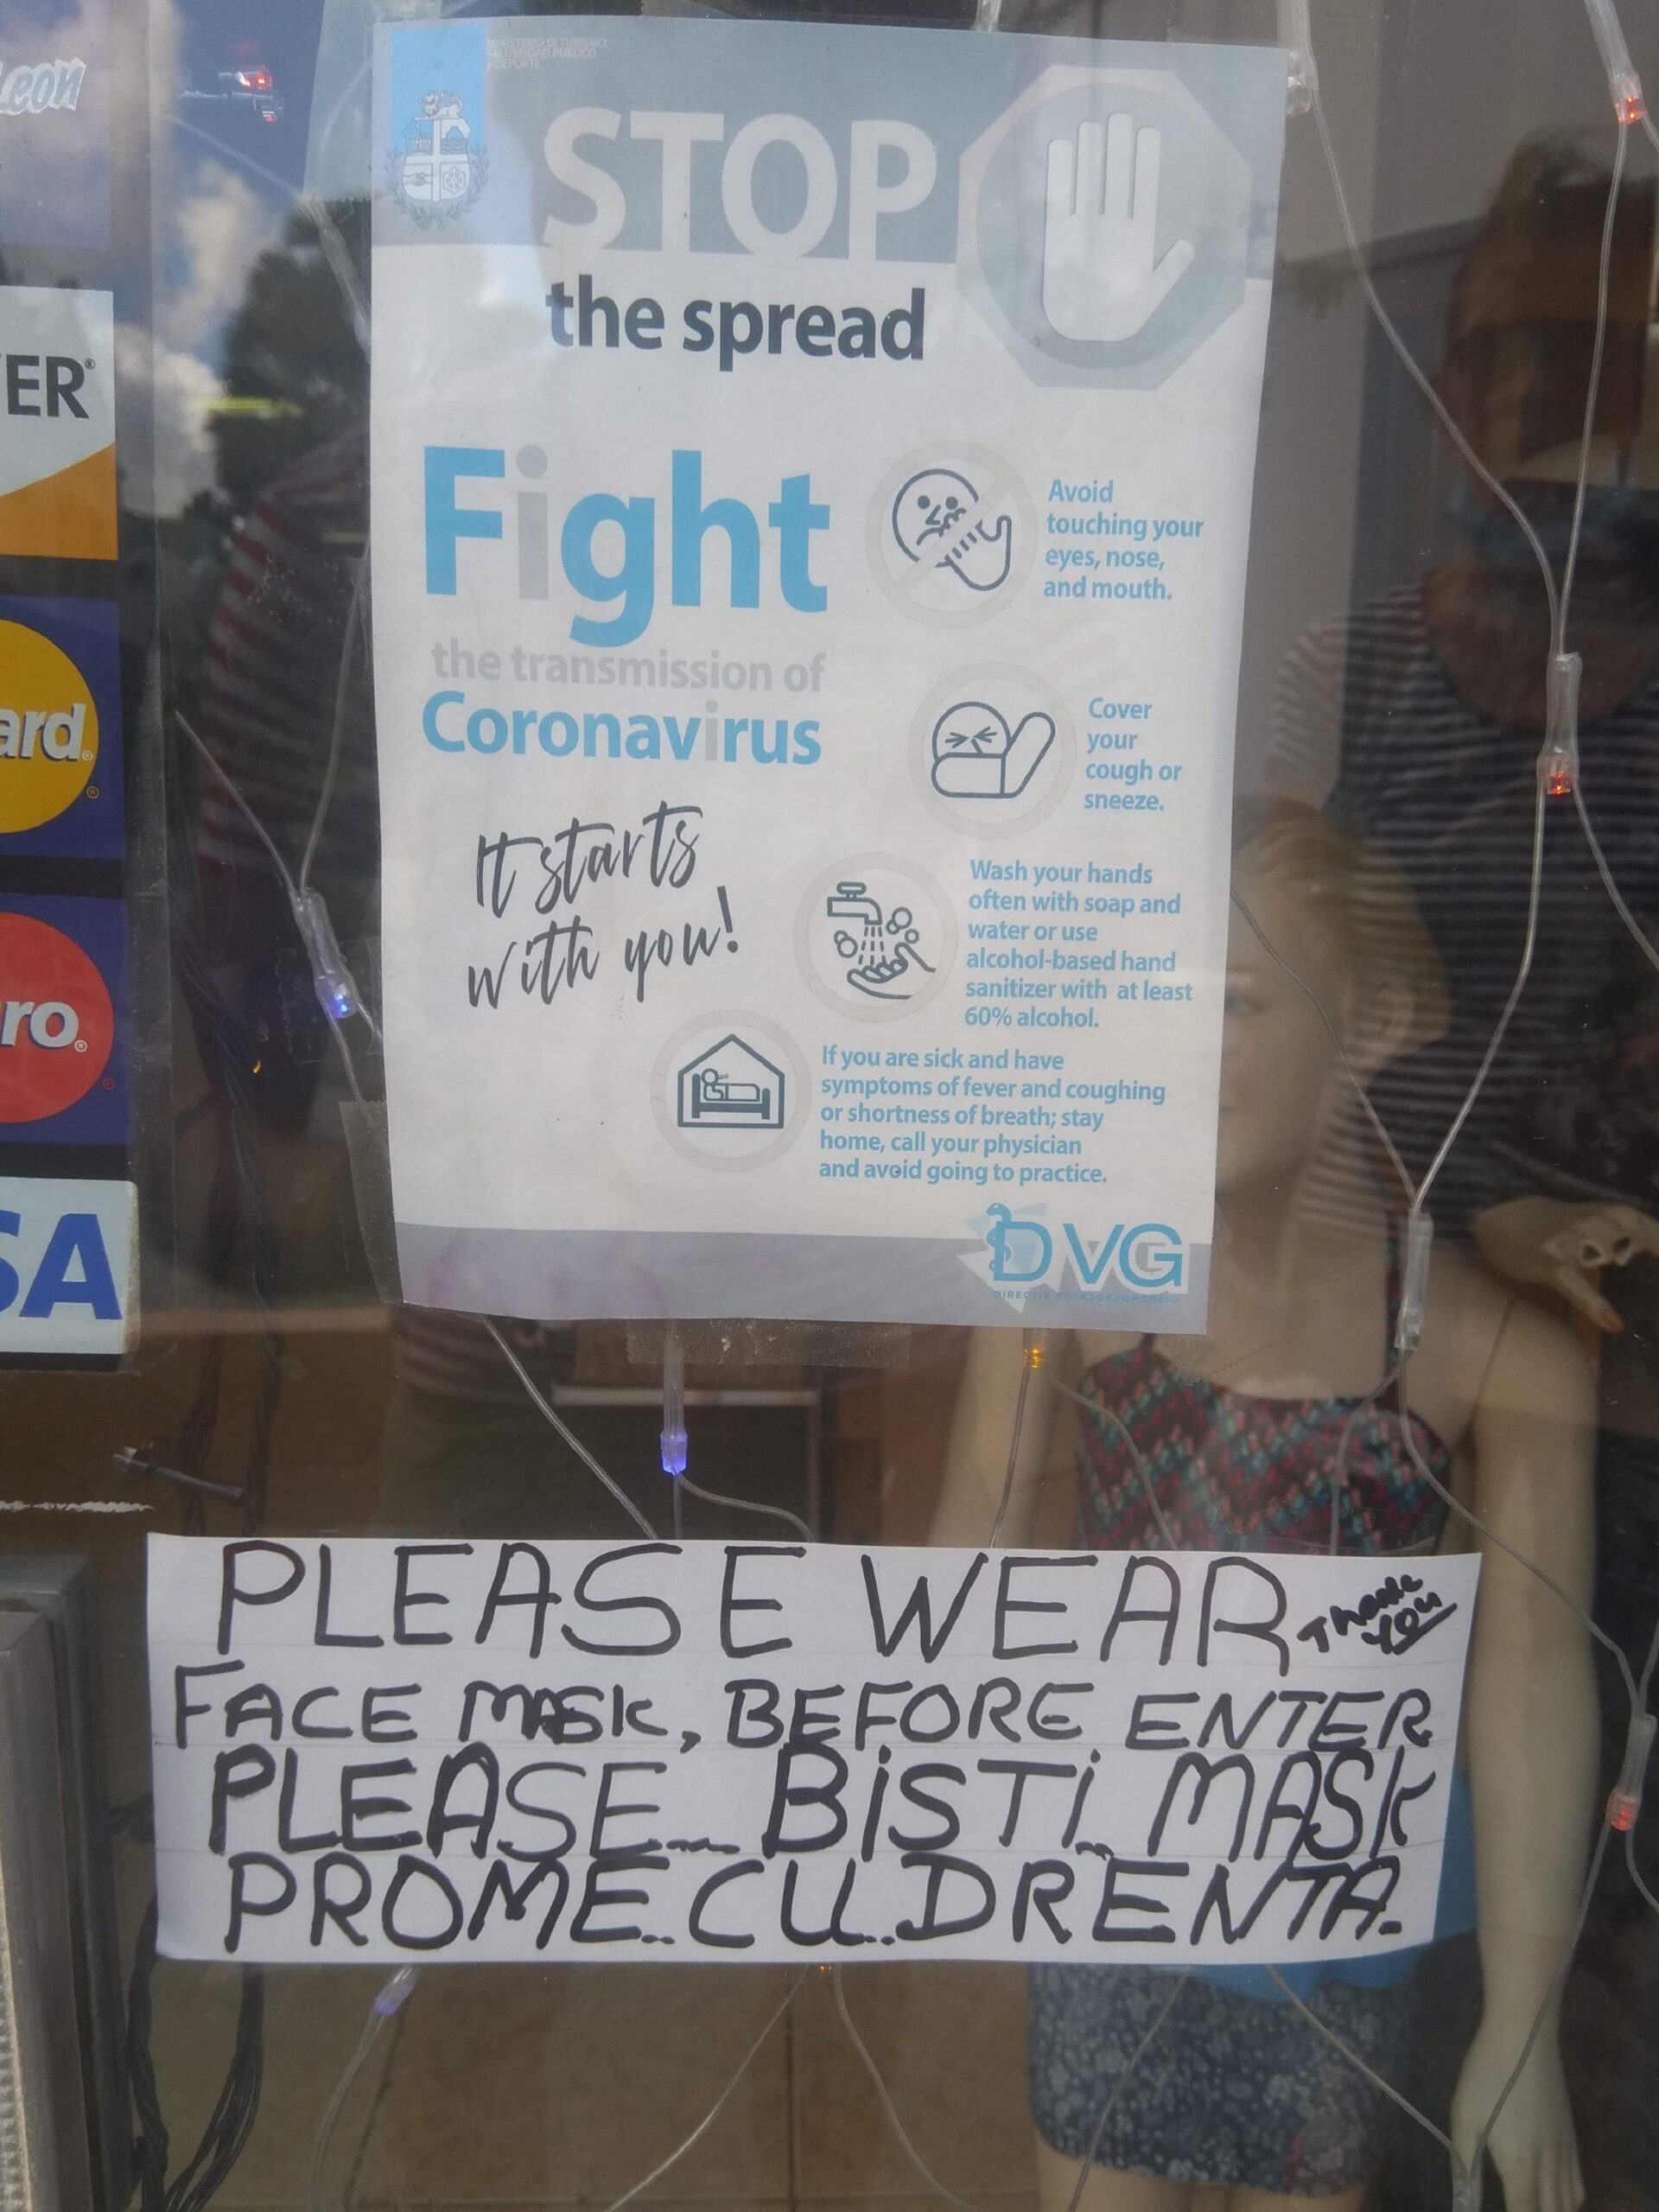 MINISTERIO DI TURISMO,
SALUBRIDAD PUBLICO
y DEPORTE
STOP
the spread
Fight
the transmission of
Coronavirus
It starts
with you!
Avoid
touching your
eyes, nose,
and mouth.
Cover
your
cough or
sneeze.
Wash your hands
often with soap and
water or use
alcohol-based hand
sanitizer with at least
60% alcohol.
If you are sick and have
symptoms of fever and coughing
or shortness of breath; stay
home, call your physician
and avoid going to practice.
DVG
DIRECTIE VOLKSGEZONDHEID
Leon
VER®
ard®
ro®
SA
PLEASE WEAR
Thank
You
FACE MASK, BEFORE ENTER
PLEASE BiSTi MASK
PROME CU DRENTA.